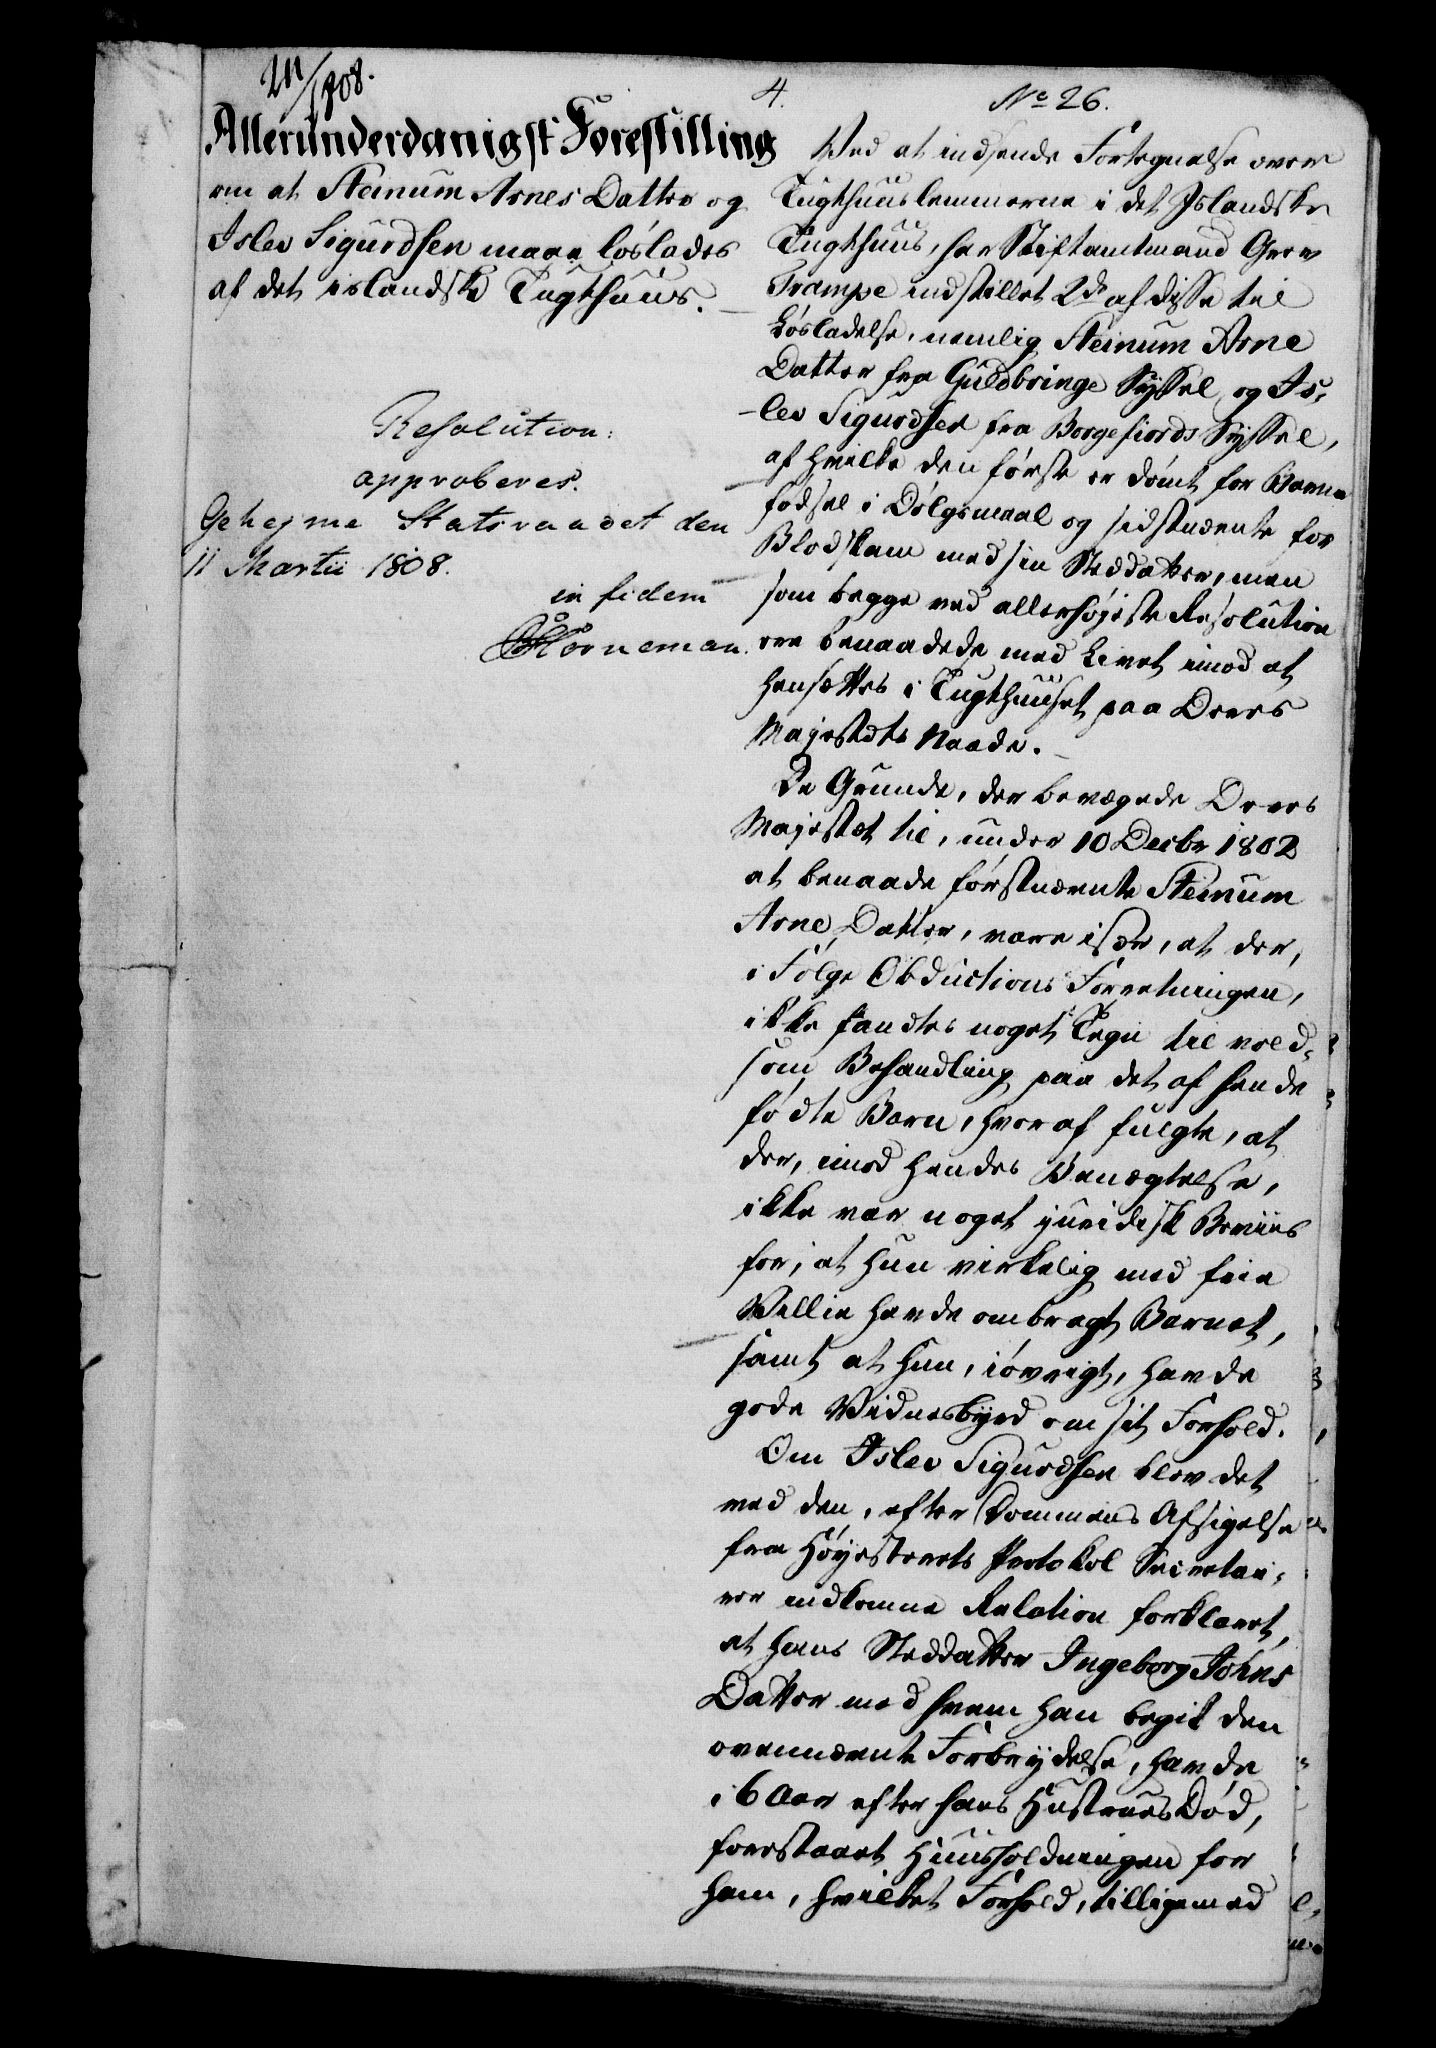 211/1808.
4.
No 26.
Allerunderdanigst Forestilling
om at Steinum Arnes Datter og
Islev Sigurdsen maae løslades
af det islandske Tugthuus.
Resolution:
approberes.
Gehejme Statsraadet den
11 Martii 1808.
in fidem
Horneman.
Ved at indsende Fortegnelse over
Tugthuuslemmerne i det Islandske
Tugthuus, har Stiftamtmand Grev
Trampe indstillet 2de af disse til
Løsladelse, nemlig Steinum Arne
Datter fra Guldbringe Syssel, og Is-
lev Sigurdsen fra Borgefiords Syssel,
af hvilke den første er dømt for Barne
fødsel i Dølgsmaal og sidstnævnte for
Blodskam med sin Steddatter, men
som begge ved allerhøjeste Resolution
ere benaadede med Livet imod at
hensættes i Tugthuuset paa Deres
Majestæts Naade.
De Grunde, der bevægede Deres
Majestæt til, under 10 Decbr 1802
at benaade førstnævnte Steinum
Arne Datter, vare især, at der,
i Følge Obductions Forretningen,
ikke fandtes noget Tegn til vold-
som Behandling paa det af hende
fødte Barn, hvoraf fulgte, at
der, imod hendes Benægtelse,
ikke var noget juridisk Beviis
for, at hun virkelig med frie
Villie havde ombragt Barnet,
samt at hun, iøvrigt, havde
gode Vidnesbyrd om sit Forhold.
Om Islev Sigurdsen blev det
ved den, efter Dommens Afsigelse
fra Høyesterets Protokol Secretai-
rer indkomne Relation forklaret,
at hans Steddatter Ingeborg Johns
Datter med hvem han begik den
ovennævnte Forbrydelse, havde
i 6 Aar efter hans Hustrues Død,
forestaaet Huusholdningen for
ham, hvilket Forhold, tilligemed